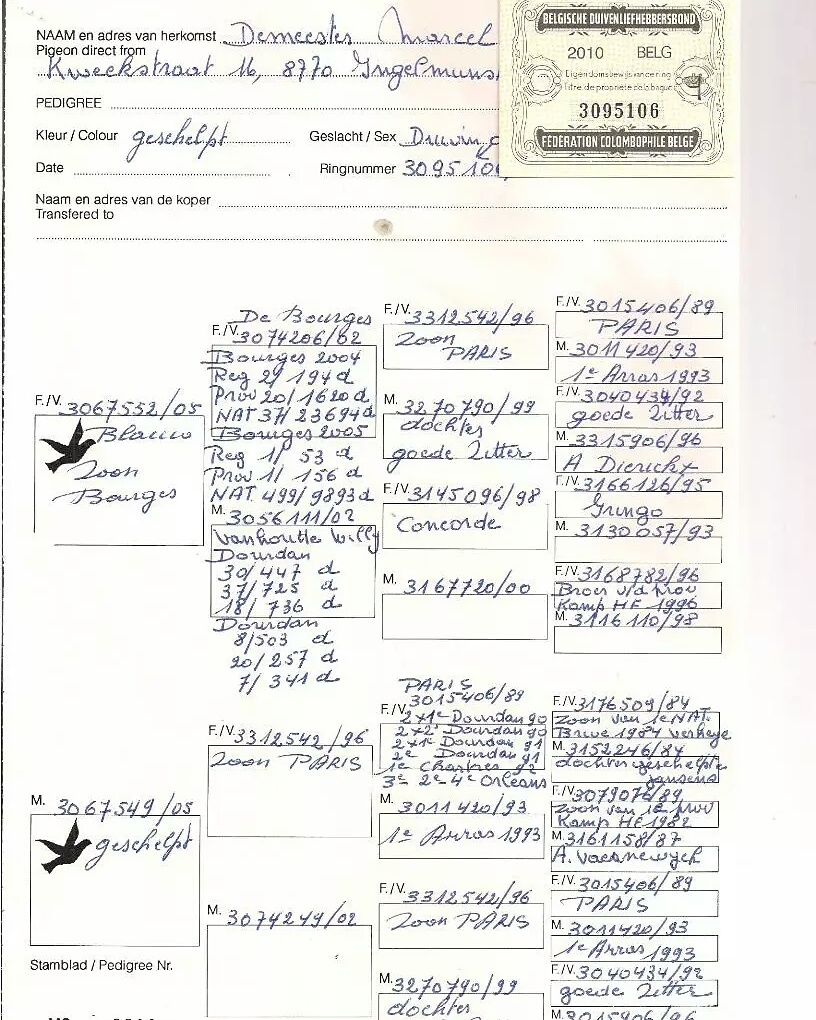 NAAM en adres van herkomst Demeester Marcel
Pigeon direct from
Kweekstraat 16, 8770 Ingelmuns
PEDIGREE
Kleur / Colour geschelpt Geslacht / Sex Duivin
Date Ringnummer 3095106
Naam en adres van de koper
Transfered to
BELGISCHE DUIVENLIEFHEBBERSBOND
2010 BELG
Eigendomsbewijs van de ring
Titre de propriété de la bague
3095106
FÉDÉRATION COLOMBOPHILE BELGE
F./V. 3067552/05
Blauw
Zoon
Bourges
De Bourges
F./V. 3074206/02
Bourges 2004
Reg 2/ 194 d
Prov 20/1620 d
NAT 37/ 23694 d
Bourges 2005
Reg 1/ 53 d
Prov 1/ 156 d
NAT 499/9893 d
M. 3056111/02
Vanhoutte Willy
Dourdan
30/447 d
37/725 d
18/ 736 d
Dourdan
8/503 d
20/257 d
7/ 341 d
F./V. 3312542/96
Zoon
PARIS
M. 3270790/99
dochter
goede Zitter
F./V. 3145096/98
Concorde
M. 3167720/00
F./V. 3015406/89
PARIS
M. 3011420/93
1e Arras 1993
F./V. 3040434/92
goede Zitter
M. 3315906/96
A Dierickx
F./V. 3166126/95
Gringo
M. 3130057/93
F./V. 3168782/96
Broer v/d prov
Kamp HF 1996
M. 3116110/98
M. 3067549/05
geschelpt
F./V. 3312542/96
Zoon PARIS
M. 3074249/02
PARIS
3015406/89
F./V.
2x1e Dourdan 90
2x2e Dourdan 90
2x1e Dourdan 91
2e Dourdan 91
1e Chartres 92
3e-2e-4e Orleans
M. 3011420/93
1e Arras 1993
F./V. 3312542/96
Zoon PARIS
M. 3270790/99
dochter
F./V. 3176509/84
Zoon van 1e NAT.
Brive 1984 Verheye
M. 3152246/84
dochter geschelpte
Jansens
F./V. 3079076/89
Zoon van 1e prov
Kamp HF 1982
M. 3161158/87
A. Vaernewyck
F./V. 3015406/89
PARIS
M. 3011420/93
1e Arras 1993
F./V. 3040434/92
goede Zitter
M. 3015906/96
Stamblad / Pedigree Nr.